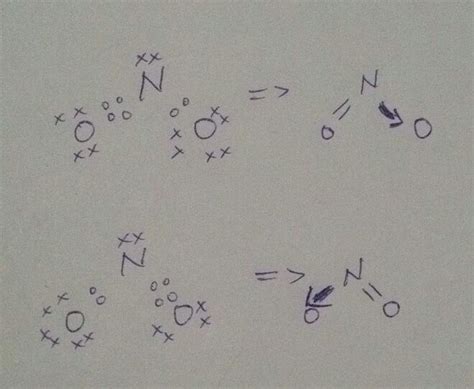 N N
O O => O O
N N
O O => O O